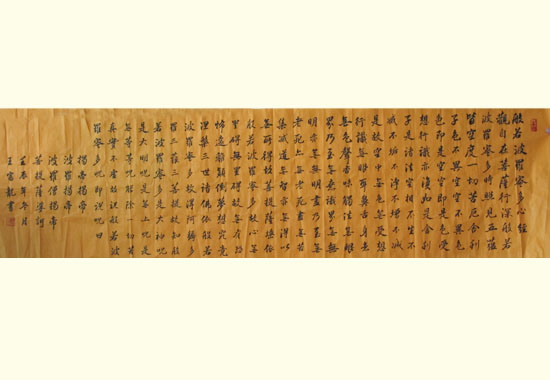 般若波羅蜜多心經
觀自在菩薩行深般若
波羅蜜多時照見五蘊
皆空度一切苦厄舍利
子色不異空空不異色
色即是空空即是色受
想行識亦復如是舍利
子是諸法空相不生不
滅不垢不淨不增不減
是故空中無色無受想
行識無眼耳鼻舌身意
無色聲香味觸法無眼
界乃至無意識界無無
明亦無無明盡乃至無
老死亦無老死盡無苦
集滅道無智亦無得以
無所得故菩提薩埵依
般若波羅蜜多故心無
罣礙無罣礙故無有恐
怖遠離顛倒夢想究竟
涅槃三世諸佛依般若
波羅蜜多故得阿耨多
羅三藐三菩提故知般
若波羅蜜多是大神咒
是大明咒是無上咒是
無等等咒能除一切苦
真實不虛故說般若波
羅蜜多咒即說咒曰
揭帝揭帝
波羅揭帝
波羅僧揭帝
菩提薩婆訶
年冬月
王富